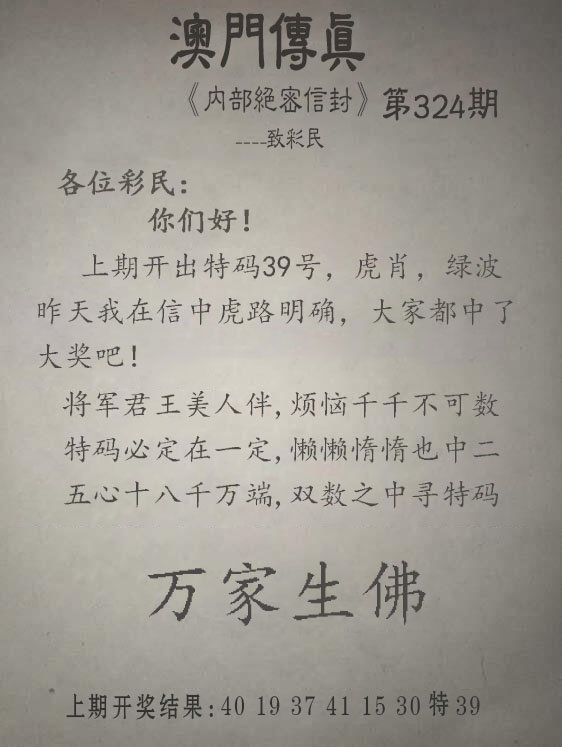 澳門傳眞
《内部絕密信封》第324期
----致彩民
各位彩民：
你们好！
上期开出特码39号，虎肖，绿波
昨天我在信中虎路明确，大家都中了
大奖吧！
将军君王美人伴,烦恼千千不可数
特码必定在一定,懒懒惰惰也中二
五心十八千万端,双数之中寻特码
万家生佛
上期开奖结果:40 19 37 41 15 30 特39